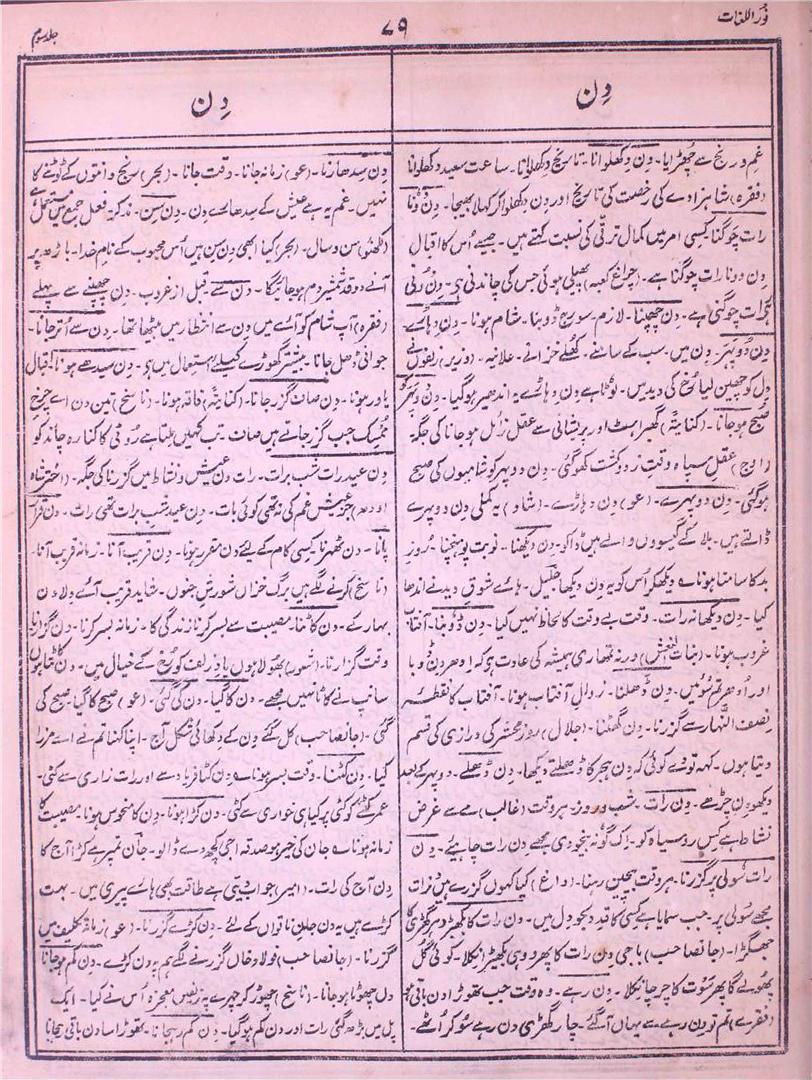 نور اللغات
۷۹
جلد سوم
دِن
غم و رنج سے چھڑایا۔ دن دکھلوانا۔ تاریخ دکھلوانا۔ ساعت سعید دکھلوانا
(فقرہ) شاہزادے کی رخصت کی تاریخ اور دن دکھلوا کر کہلا بھیجا۔ دن دونا
رات چوگنا کسی امر میں کمال ترقی کی نسبت کہتے ہیں۔ جیسے اُس کا اقبال
دن دونا رات چوگنا ہے۔ (چراغ کعبہ) پھیلی ہوئی جس کی چاندنی ہی۔ دن دونی
رات چوگنی ہے۔ دن چھپنا۔ لازم۔ سورج ڈوبنا۔ شام ہونا۔ دن دہاڑے
دن دوپہر۔ دن میں۔ سب کے سامنے۔ کھلے خزانے۔ علانیہ۔ (وزیر) زلفوں نے
دل کو چھین لیا رُخ کی دید میں۔ لوٹا ہے دن دہاڑے یہ اندھیر ہو گیا۔ دن دوپہر کو
صبح ہو جانا۔ (کنایۃً) گھبراہٹ اور پریشانی سے عقل زائل ہو جانا کی جگہ
(اوج) عقل سپاہ وقت زد و کشت کھو گئی۔ دن دوپہر کو شامیوں کی صبح
ہو گئی۔ دن دوپہرے۔ (عو) دن دہاڑے۔ (شاد) یہ کملی دن دوپہرے
ڈالتے ہیں۔ بلا کے گیسووں والے ہیں ڈاکو۔ دن دیکھنا۔ نوبت پہنچنا۔ روز
بد کا سامنا ہونا دیکھکر اُس کو یہ دن دیکھا جلیل۔ ہائے شوق دید نے اندھا
کیا۔ دن دیکھا نہ رات۔ وقت بے وقت کا لحاظ نہیں کیا۔ دن ڈوبنا۔ آفتاب
غروب ہونا۔ (بنات النعش) ورنہ تمھاری ہمیشہ کی عادت ہی کہ ادھر دن ڈوبا
اور اُدھر تم سوئیں۔ دن ڈھلنا۔ زوال آفتاب ہونا۔ آفتاب کا نقطہ
نصف النہار سے گزرنا۔ دن گھٹنا۔ (جلال) روز محشر کی درازی کی قسم
دیتا ہوں۔ کہہ تو دے کوئی کہ دن ہجر کا ڈھلتے دیکھا۔ دن ڈھلے۔ دوپہر کے بعد
دیکھو دن چڑھے۔ دن رات۔ شب و روز۔ ہر وقت (غالب) مے سے غرض
نشاط ہے کس رو سیاہ کو۔ اک گونہ بیخودی مجھے دن رات چاہیئے۔ دن
رات سولی پر گزرنا۔ ہر وقت بیچین رہنا۔ (داغ) کیا کہوں گزرے ہیں دن رات
مجھے سولی پر۔ جب سمایا ہے کسی کا قد دلجو دل میں۔ دن رات کا کھڑ ہر گھڑی کا
جھگڑا۔ (جانصاحب) باجی دن رات کا پھر وہی کھیڑا نکلا۔ کوئی گل
پھولے گا پھر سوت کا چرچا نکلا۔ دن رہے۔ وہ وقت جب تھوڑا دن باقی ہو
(فقرے) تم تو دن رہے سے یہاں آ گئے۔ چار گھڑی دن رہے سو کر اُٹھے۔
دِن
دن سدھارنا۔ (عو) زمانہ جانا۔ وقت جانا۔ (بحر) رنج دانتوں کے ٹوٹنے کا
نہیں۔ غم یہ ہے عیش کے سدھارے دن۔ دن سِن۔ مذکر۔ فعل جمع میں مستعمل ہے
(لکھنؤ) سن و سال۔ (بحر) کیا ابھی دن سن ہیں اُس محبوب کے نام خدا۔ باڑھ پر
آنے دو قد شمشیر دم ہو جائیگا۔ دن سے قبل از غروب۔ دن چھپنے سے پہلے
(فقرہ) آپ شام کو آئے میں دن سے انتظار میں بیٹھا تھا۔ دن سے اُتر جانا۔
جوانی ڈھل جانا۔ بیشتر گھوڑے کیلئے استعمال میں ہی۔ دن سیدھے ہونا۔ اقبال
یاور ہونا۔ دن صاف گزر جانا۔ (کنایۃً) فاقہ ہونا۔ (ناسخ) تین دن اے چرخ
ممسک جب گزر جاتے ہیں صاف۔ تب کہیں ملتا ہے روٹی کا کنارہ چاند کو
دن عید رات شب برات۔ رات دن عیش و نشاط میں گزرنا کی جگہ۔ (اختر شاہ
اودھ) جز عیش غم کی نہ تھی کوئی بات۔ دن عید شب برات تھی رات۔ دن قرار
پانا۔ دن ٹھہرنا کیسی کام کے لیئے دن مقرر ہونا۔ دن قریب آنا۔ زمانہ قریب آنا۔
(ناسخ) کرنے لگے ہیں برگ خزاں شورش جنوں۔ شاید قریب آئے دلا دن
بہار کے۔ دن کاٹنا۔ مصیبت سے بسر کرنا زندگی کا۔ زمانہ بسر کرنا۔ دن گزارنا
وقت گزارنا۔ (شعور) بھولا ہوں یاد زلف کو رُخ کے خیال میں۔ دن کاٹتا ہوں
سانپ نے کاٹا نہیں مجھے۔ دن کا گیا۔ دن کی گئی۔ (عو) صبح کا گیا۔ صبح کی
گئی۔ (جانصاحب) کل گئے دن کے دکھائی شکل آج۔ اپنا کہنا تم نے اے مرزا
کیا۔ دن کٹنا۔ وقت بسر ہونا۔ دن کٹا فریاد سے اور رات زاری سے کٹی۔
عمر کٹنے کو کٹی پر کیا ہی خواری سے کٹی۔ دن کڑا ہونا۔ دن کا منحوس ہونا۔ مصیبت کا
زمانہ ہونا۔ جان کی خیر ہو صدقہ اجی کچھ دے ڈالو۔ جان تمپر ہے کڑا آج کا
دن آج کی رات۔ (امیر) جواب دیتی ہے طاقت بھی ہائے پیری میں۔ بہت
کڑے ہیں یہ دن جان ناتواں کے لئے۔ دن کڑے گزرنا۔ (عو) زمانہ تکلیف میں
گزرنا۔ (جانصاحب) فولاد خاں گزرنے لگے ہم پہ دن کڑے۔ دن کم ہو جانا
دل چھوٹا ہو جانا۔ (ناسخ) چھوڑ کر چہرے پہ زلفیں معجزہ اُس نے کیا۔ ایک
پل میں بڑھ گئی رات اور دن کم ہو گیا۔ دن کم رہجانا۔ تھوڑا سا دن باقی رہجانا